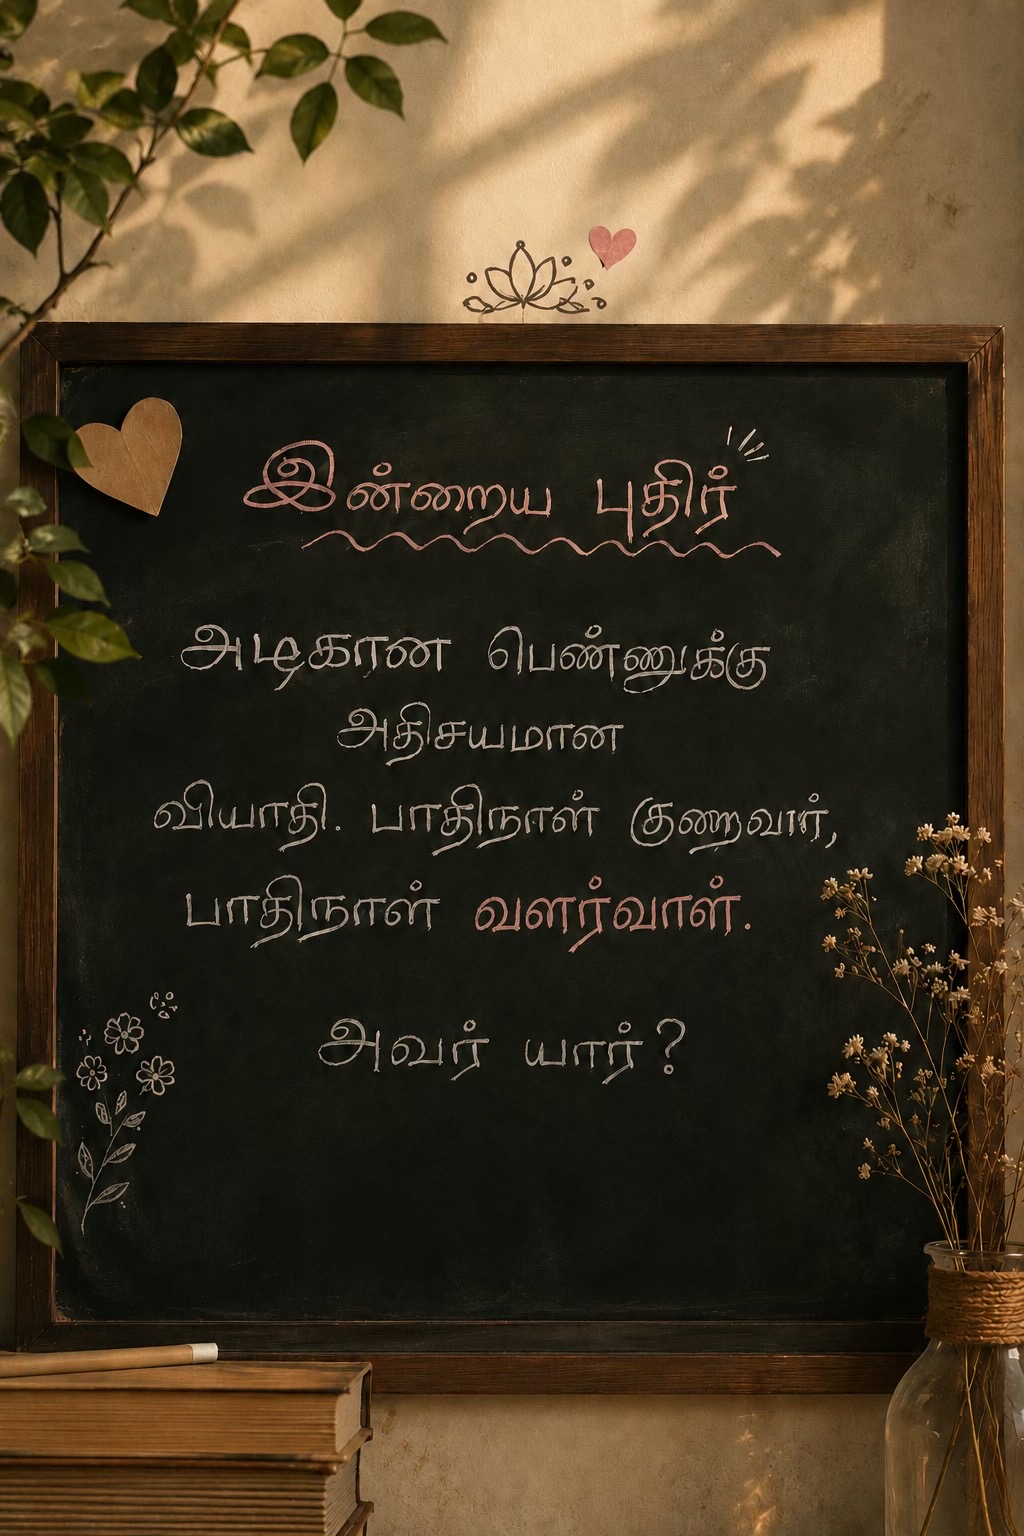 இன்றைய புதிர்
அடிகான பெண்ணுக்கு
அதிசயமான
வியாதி. பாதிநாள் குறைவார்,
பாதிநாள் வளர்வாள்.
அவர் யார்?